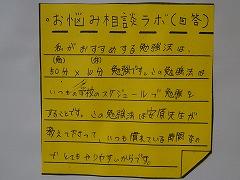 ・お悩み相談ラボ(回答)
私がおすすめする勉強法は、
(勉) (休)
50分×10分勉強です。この勉強法は
いつもの学校のスケジュールで勉強を
することです。この勉強法は安原先生が
教えて下さって、いつも慣れている時間なの
でとてもやりやすいからです。